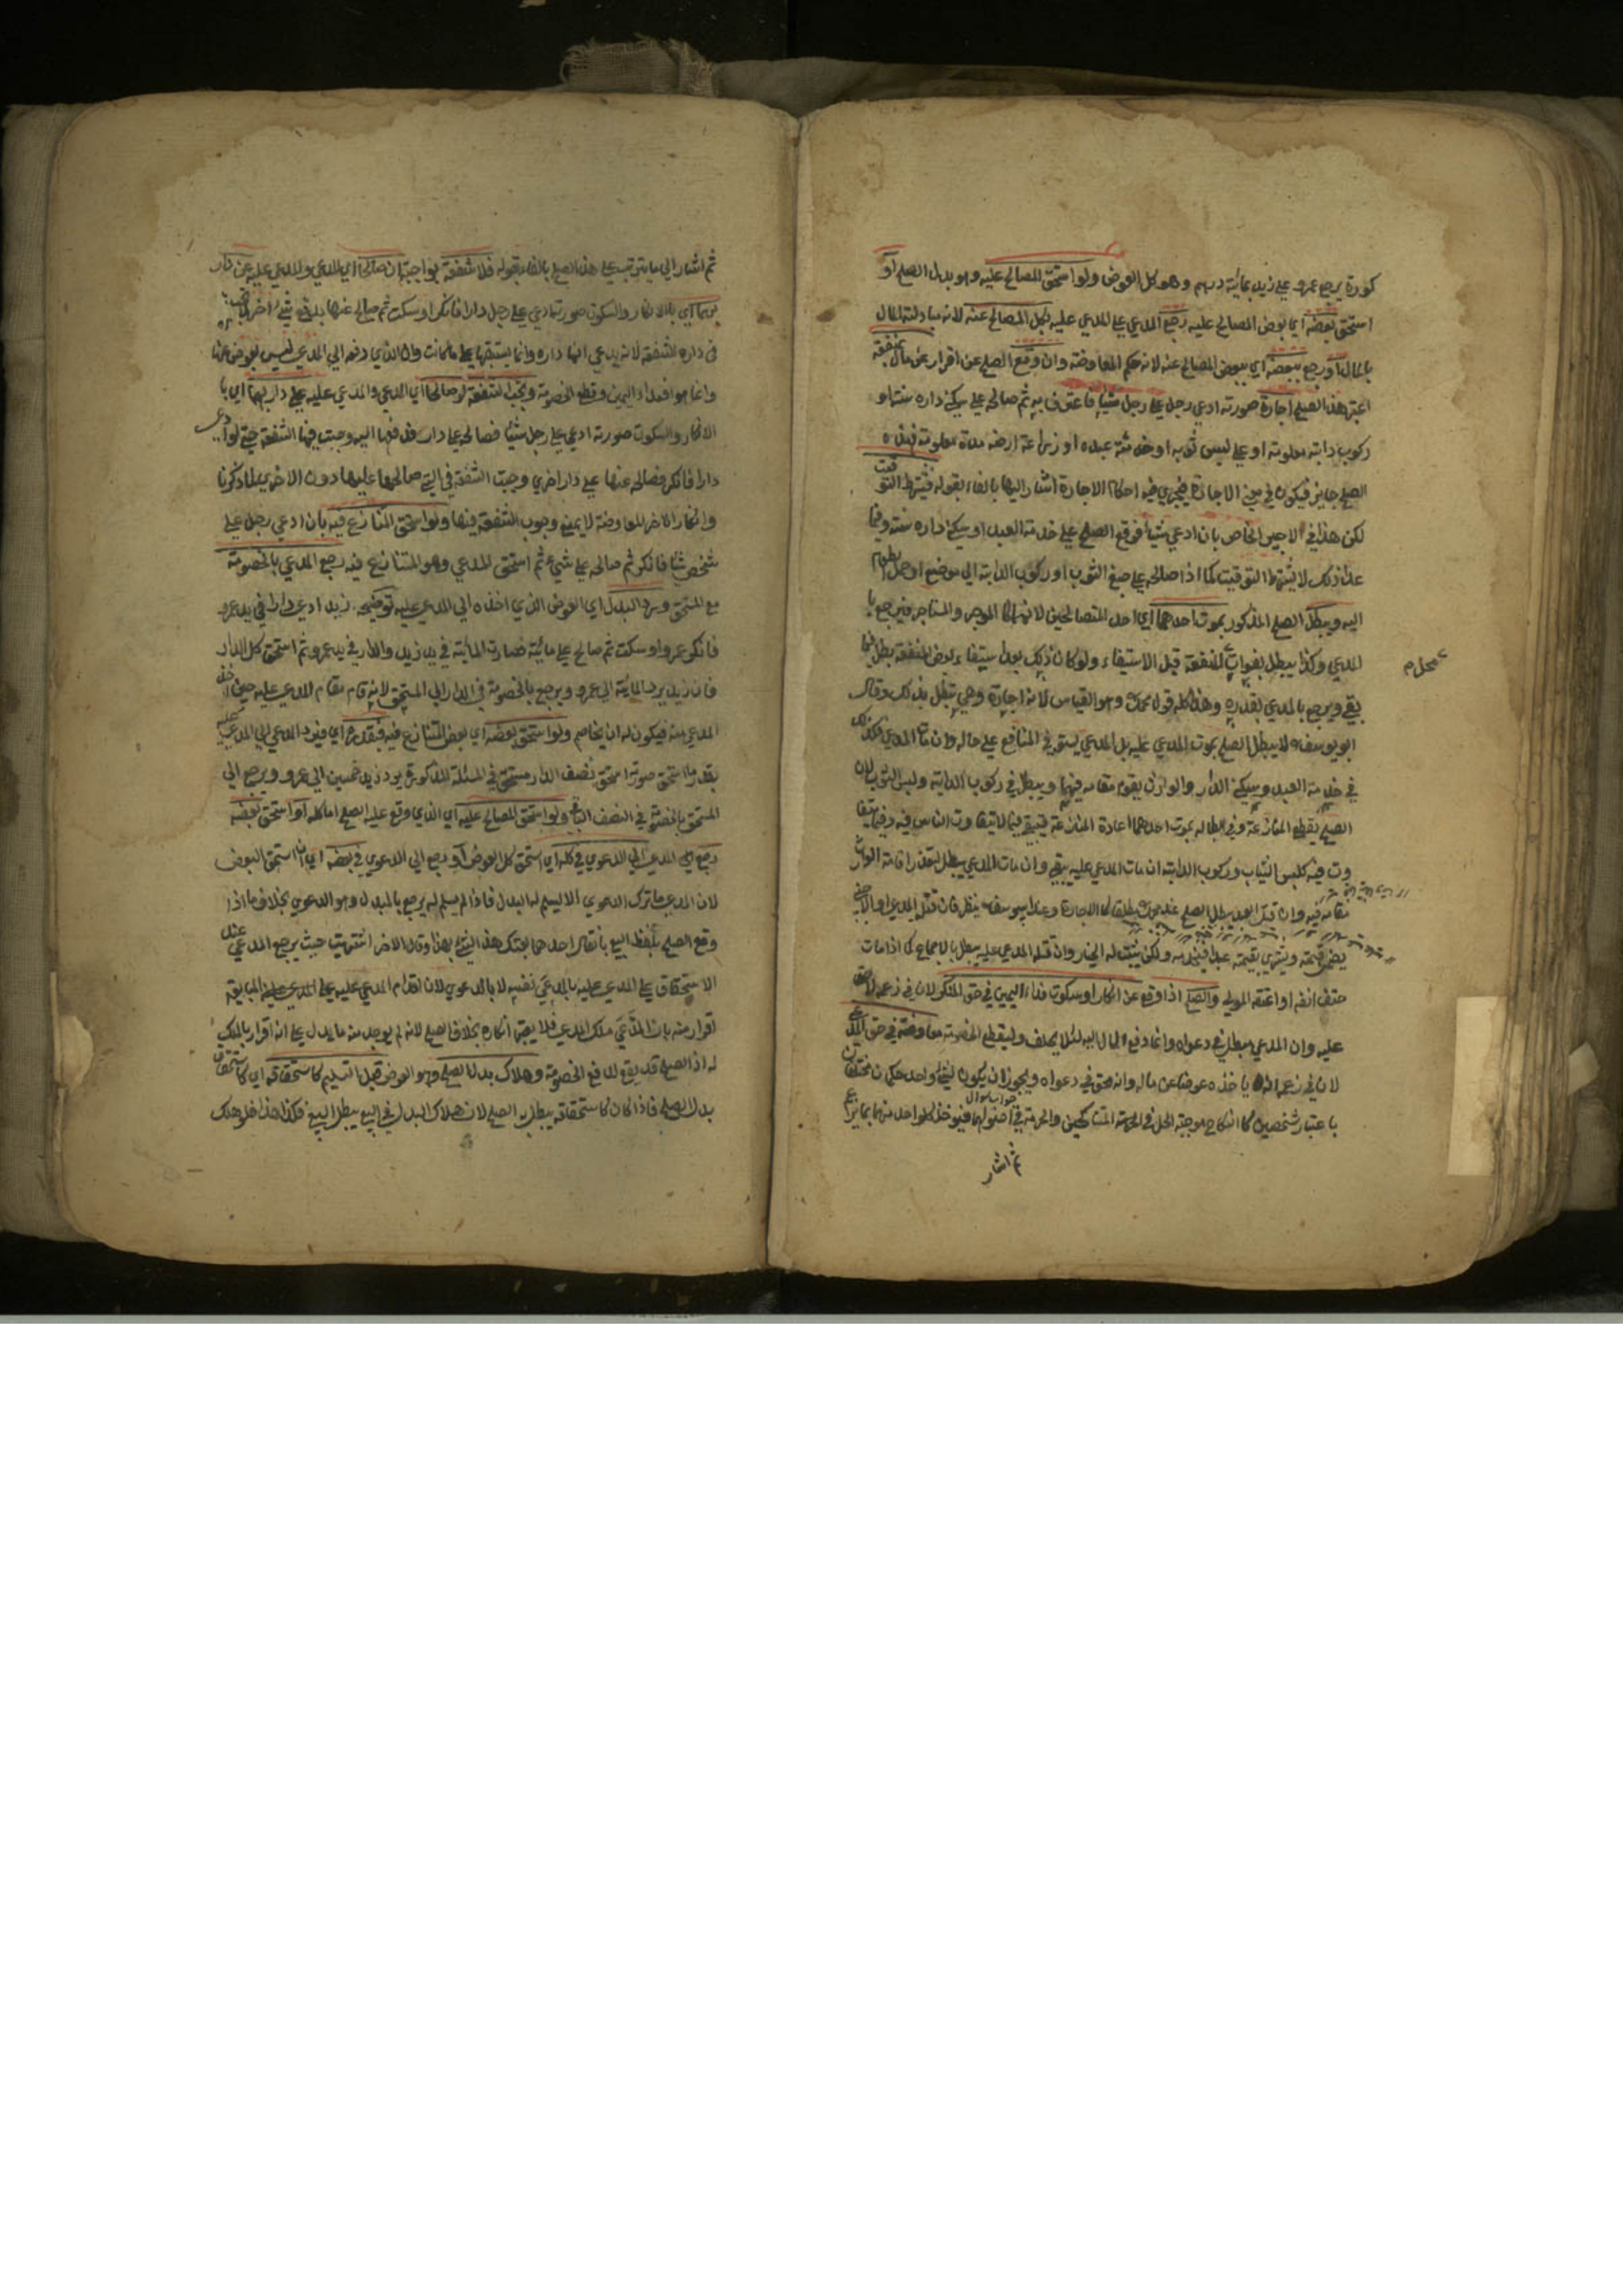 كورة يرجع عمرو على زيد بمائة درهم وهو كل العوض ولو استحق المصالح عليه وهو بدل الصلح أو
استحق بعضه اي بعض المصالح عليه رجع المدعي على المدعى عليه بكل المصالح عنه لانه مبادلة المال
بالمال او رجع ببعضه اي ببعض المصالح عنه لانه حكم المعاوضة وان وقع الصلح عن اقرار عن مال بمنفعة
اعتبر هذا الصلح اجارة صورته ادعى رجل على رجل شيئا فاعترف به ثم صالحه على سكنى داره سنة او
ركوب دابة معلومة او على لبس ثوبه او خدمة عبده او زراعة ارضه مدة معلومة فهذه
الصلح جايز فيكون في معنى الاجارة فيجري فيه احكام الاجارة اشار اليها بالفاء بقوله فيشترط التوقيت
لكن هذا في الاجير الخاص بان ادعى شيئا فوقع الصلح على خدمة العبد او سكنى داره سنة وفيما
عدا ذلك لا يشترط التوقيت كما اذا صالحه على صبغ الثوب او ركوب الدابة الى موضع او حمل طعام
اليه ويبطل الصلح المذكور بموت احدهما اي احد المتصالحين لانهما كالموجر والمستاجر فيرجع با
لمدعي وكذا يبطل بفوات المنفعة قبل الاستيفاء ولو كان ذلك بعد استيفاء بعض المنفعة بطل فيما
محل م
بقي ويرجع بالمدعي بقدره وهذا كله قول محمد وهو القياس لانه اجارة وهي تبطل بذلك وقال
ابو يوسف لا يبطل الصلح بموت المدعى عليه بل المدعي يستوفي المنافع على حاله وان مات المدعي فكذلك
في خدمة العبد وسكنى الدار والوارث يقوم مقامه فيهما ويبطل في ركوب الدابة ولبس الثوب لان
الصلح يقطع المنازعة وفي ابطاله بموت احدهما اعادة المنازعة فيبقى فيما لا يتفاوت الناس فيه وفيما يتفا
وت فيه كلبس الثياب وركوب الدابة ان مات المدعى عليه يبقى وان مات المدعي يبطل لتعذر اقامة الوارث
مقامه فيه وان قتل العبد يبطل الصلح عند محمد مطلقا كالاجارة وعند ابي يوسف ينظر فان قتله المدعي او الاجنبي
يضمن قيمته ويشتري بقيمته عبدا فيخدمه ولكن يثبت له الخيار وان قتله المدعى عليه يبطل بالاجماع كما اذا مات
حتف انفه او اعتقه المولى والصلح اذا وقع عن انكار او سكوت فداء اليمين في حق المنكر لان في زعمه لا حق
عليه وان المدعي مبطل في دعواه وانما دفع المال اليه لئلا يحلف وليقطع الخصومة معاوضة في حق المدعي
لان في زعمه انه ياخذه عوضا عن ماله وانه محق في دعواه ويجوز ان يكون لشيء واحد حكمان مختلفان
باعتبار شخصين كالنكاح موجبه الحل في المتناكحين والحرمة في اصولهما فيوخذ كل واحد منهما بما يزعم
ثم اشار
ثم اشار الى ما يترتب على هذا الصلح بالفاء بقوله فلا شفعة بواجبة ان صالحا اي المدعي والمدعى عليه عن دار
بهما اي بالانكار والسكوت صورته ادعى على رجل دارا فانكر او سكت ثم صالح عنها بدفع شيء اخر
في داره الشفعة لانه يدعي انها داره وانما يستبقيها على ما كانت وان الذي دفعه الى المدعي ليس بعوض عنها
وانما هو افتداء اليمين وقطع الخصومة وتجب الشفعة لو صالحا اي المدعي والمدعى عليه على دار بهما اي با
لانكار والسكوت صورته ادعى على رجل شيئا فصالحه على دار فدفعها اليه وجبت فيها الشفعة حتى لو ادعى
دارا فانكر فصالحه عنها على دار اخرى وجبت الشفعة في التي صالحها عليها دون الاخرى لما ذكرنا
وانكار الاخر المعاوضة لا يمنع وجوب الشفعة فيها ولو استحق المتنازع فيه بان ادعى رجل على
شخص شيئا فانكر ثم صالحه على شيء ثم استحق المدعي وهو المتنازع فيه رجع المدعي بالخصومة
مع المستحق ورد البدل اي العوض الذي اخذه الى المدعى عليه توضيحه زيد ادعى دارا في يد عمرو
فانكر عمرو او سكت ثم صالح على مائة فصارت المائة في يد زيد والدار في يد عمرو ثم استحق كل الدار
فان زيد يرد المائة الى عمرو ويرجع بالخصومة في الدار الى المستحق لانه قام مقام المدعى عليه حين اخذ
المدعي منه فيكون له ان يخاصم ولو استحق بعضه اي بعض المتنازع فيه فبقدره اي فيرد المدعي الى المدعى عليه
بقدر ما استحق صورته استحق نصف الدار مستحق في المسئلة المذكورة يرد زيد خمسين الى عمرو ويرجع الى
المستحق بالخصومة في النصف الباقي ولو استحق المصالح عليه اي الذي وقع عليه الصلح اما كله او استحق بعضه
رجع اي المدعي الى الدعوى في كله اي استحق كل العوض او رجع الى الدعوى في بعضه اي ان استحق البعض
لان المدعي ما ترك الدعوى الا ليسلم له البدل فاذا لم يسلم له يرجع بالمبدل وهو الدعوى بخلاف ما اذا
وقع الصلح بلفظ البيع بان قال احدهما بعتك هذا الشيء بهذا وقال الاخر اشتريت حيث يرجع المدعي عند
الاستحقاق على المدعى عليه بالمدعى نفسه لا بالدعوى لان اقدام المدعى عليه على المبايعة
اقرار منه بان المدعى ملك المدعي فلا يعتبر انكاره بخلاف الصلح لانه لم يوجد منه ما يدل على انه اقرار بالملك
له اذ الصلح قد يقع لدفع الخصومة وهلاك بدل الصلح وهو العوض قبل التسليم كاستحقاقه اي كاستحقاق
بدل الصلح فاذا كان كاستحقاقه يبطل به الصلح لان هلاك البدل في البيع يبطل البيع فكذا هذا فلو هلك